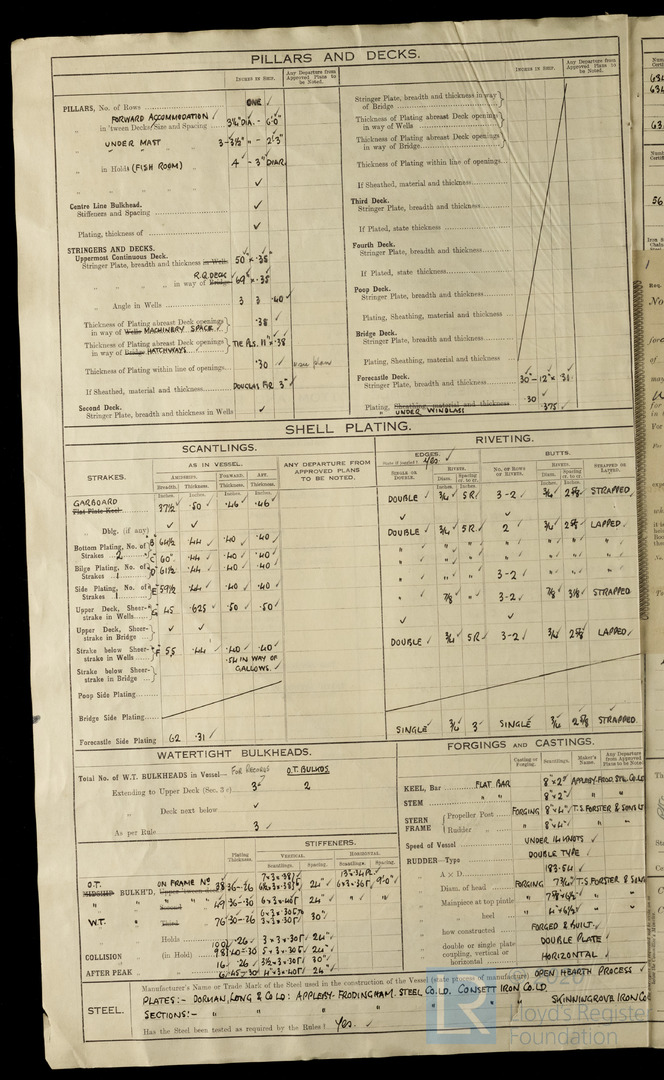 PILLARS AND DECKS.
INCHES IN SHIP.
Any Departure from Approved Plans to be Noted.
PILLARS, No. of Rows ONE ✓
FORWARD ACCOMMODATION ✓
in 'tween Decks, Size and Spacing 3¼" DIA. - 6'-0"
UNDER MAST 3-3½" " - 2'-3"
in Holds (FISH ROOM) 4 - 3" DIAR.
Centre Line Bulkhead.
Stiffeners and Spacing ✓
Plating, thickness of ✓
STRINGERS AND DECKS.
Uppermost Continuous Deck.
Stringer Plate, breadth and thickness in Wells 50 × .38
R.Q. DECK
in way of Bridge 69 × .38
Angle in Wells 3 3 .40 ✓
Thickness of Plating abreast Deck openings in way of Wells MACHINERY SPACE ✓ .38
Thickness of Plating abreast Deck openings in way of Bridge HATCHWAYS ✓ TIE PLS. 11" × .38
Thickness of Plating within line of openings .30 ✓
If Sheathed, material and thickness DOUGLAS FIR 3" ✓
Second Deck.
Stringer Plate, breadth and thickness in Wells ✓
INCHES IN SHIP.
Any Departure from Approved Plans to be Noted.
Stringer Plate, breadth and thickness in way of Bridge
Thickness of Plating abreast Deck openings in way of Wells
Thickness of Plating abreast Deck openings in way of Bridge
Thickness of Plating within line of openings
If Sheathed, material and thickness
Third Deck.
Stringer Plate, breadth and thickness
If Plated, state thickness
Fourth Deck.
Stringer Plate, breadth and thickness
If Plated, state thickness
Poop Deck.
Stringer Plate, breadth and thickness
Plating, Sheathing, material and thickness
Bridge Deck.
Stringer Plate, breadth and thickness
Plating, Sheathing, material and thickness
Forecastle Deck.
Stringer Plate, breadth and thickness 30-12 × .31
Plating, Sheathing, material and thickness .30 ✓
UNDER WINDLASS .375 ✓
SHELL PLATING.
SCANTLINGS.
RIVETING.
STRAKES.
AS IN VESSEL.
AMIDSHIPS.
FORWARD.
AFT.
Breadth.
Thickness.
Thickness.
Thickness.
Inches.
ANY DEPARTURE FROM APPROVED PLANS TO BE NOTED.
EDGES.
State if joggled? Yes. ✓
BUTTS.
SINGLE OR DOUBLE.
RIVETS.
Diam.
Spacing cr. to cr.
NO. OF ROWS OF RIVETS.
RIVETS.
Diam.
Spacing cr. to cr.
STRAPPED OR LAPPED.
GARBOARD
Flat Plate Keel 37½ .50 .46 .46 DOUBLE ✓ ¾ 5R 3-2 ✓ ¾ 2⅝ STRAPPED
Dblg. (if any) ✓ ✓
Bottom Plating, No. of Strakes 2 B 64½ .44 .40 .40 DOUBLE ✓ ¾ 5R. 2 ✓ ¾ 2⅝ LAPPED
C 60" .44 .40 .40
Bilge Plating, No. of Strakes 1 D 61½ .44 .40 .40 3-2
Side Plating, No. of Strakes 1 E 59½ .44 .40 .40
Upper Deck, Sheerstrake in Wells G 45 .625 .50 .50 ⅞ 3-2 ⅞ 3⅛ STRAPPED
Upper Deck, Sheerstrake in Bridge ✓ ✓
Strake below Sheerstrake in Wells F 55 .44 .40 .40 DOUBLE ✓ ¾ 5R 3-2 ✓ ¾ 2⅝ LAPPED
.54 IN WAY OF GALLOWS. ✓
Strake below Sheerstrake in Bridge
Poop Side Plating
Bridge Side Plating
Forecastle Side Plating 62 .31 ✓ SINGLE ¾ 3 SINGLE ¾ 2⅝ STRAPPED
WATERTIGHT BULKHEADS.
Total No. of W.T. BULKHEADS in Vessel— FOR RECORD O.T. BULKDS
Extending to Upper Deck (Sec. 3 c) 3 2
Deck next below ✓
As per Rule 3 ✓
STIFFENERS.
Plating Thickness.
VERTICAL.
HORIZONTAL.
Scantlings.
Spacing.
Scantlings.
Spacing.
O.T.
MIDSHIP BULKH'D, ON FRAME No
88 .36-.26 24" 6×3×.36 9'-0"
49 .36-.30 6×3×.40 24"
Second
W.T. Third 76 .30-.26 30"
Holds 100 .26 3×3×.30 24"
COLLISION (in Hold) 5×3×.30 24"
16 .26 3½×3×.30 30"
AFTER PEAK 24"
FORGINGS AND CASTINGS.
Casting or Forging.
Scantlings.
Maker's Name.
Any Departure from Approved Plans to be Noted
KEEL, Bar FLAT BAR 8" × 2" APPLEBY-FROD. STL CO. LD
STEM " " 8" × 2"
STERN FRAME Propeller Post FORGING 8" × 4" T.S. FORSTER & SONS LTD
Rudder 8" × 4"
Speed of Vessel UNDER 14 KNOTS ✓
RUDDER—Type DOUBLE TYPE ✓
A × D 183.54 ✓
Diam. of head FORGING 7¾ T.S. FORSTER & SONS
Mainpiece at top pintle
heel
how constructed FORGED & BUILT ✓
double or single plate DOUBLE PLATE
coupling, vertical or horizontal HORIZONTAL ✓
STEEL.
Manufacturer's Name or Trade Mark of the Steel used in the construction of the Vessel (state process of manufacture) OPEN HEARTH PROCESS ✓
PLATES:- DORMAN, LONG & CO LD: APPLEBY-FRODINGHAM. STEEL CO. LD. CONSETT IRON CO. LD
SECTIONS:- " " " " SKINNINGROVE IRON CO
Has the Steel been tested as required by the Rules? Yes. ✓
LR
2020
Lloyd's Register
Foundation